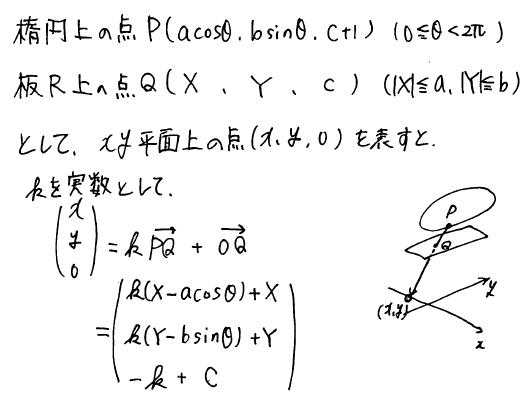 楕円上の点 P(acosθ, bsinθ, C+1) (0≦θ<2π)
板R上の点 Q(X, Y, C) (|X|≦a, |Y|≦b)
として、xy平面上の点(x, y, 0)を表すと、
kを実数として、
(x y 0) = kPQ + OQ
= (k(X-acosθ)+X
k(Y-bsinθ)+Y
-k + C)
P
Q
(x,y)
y
x